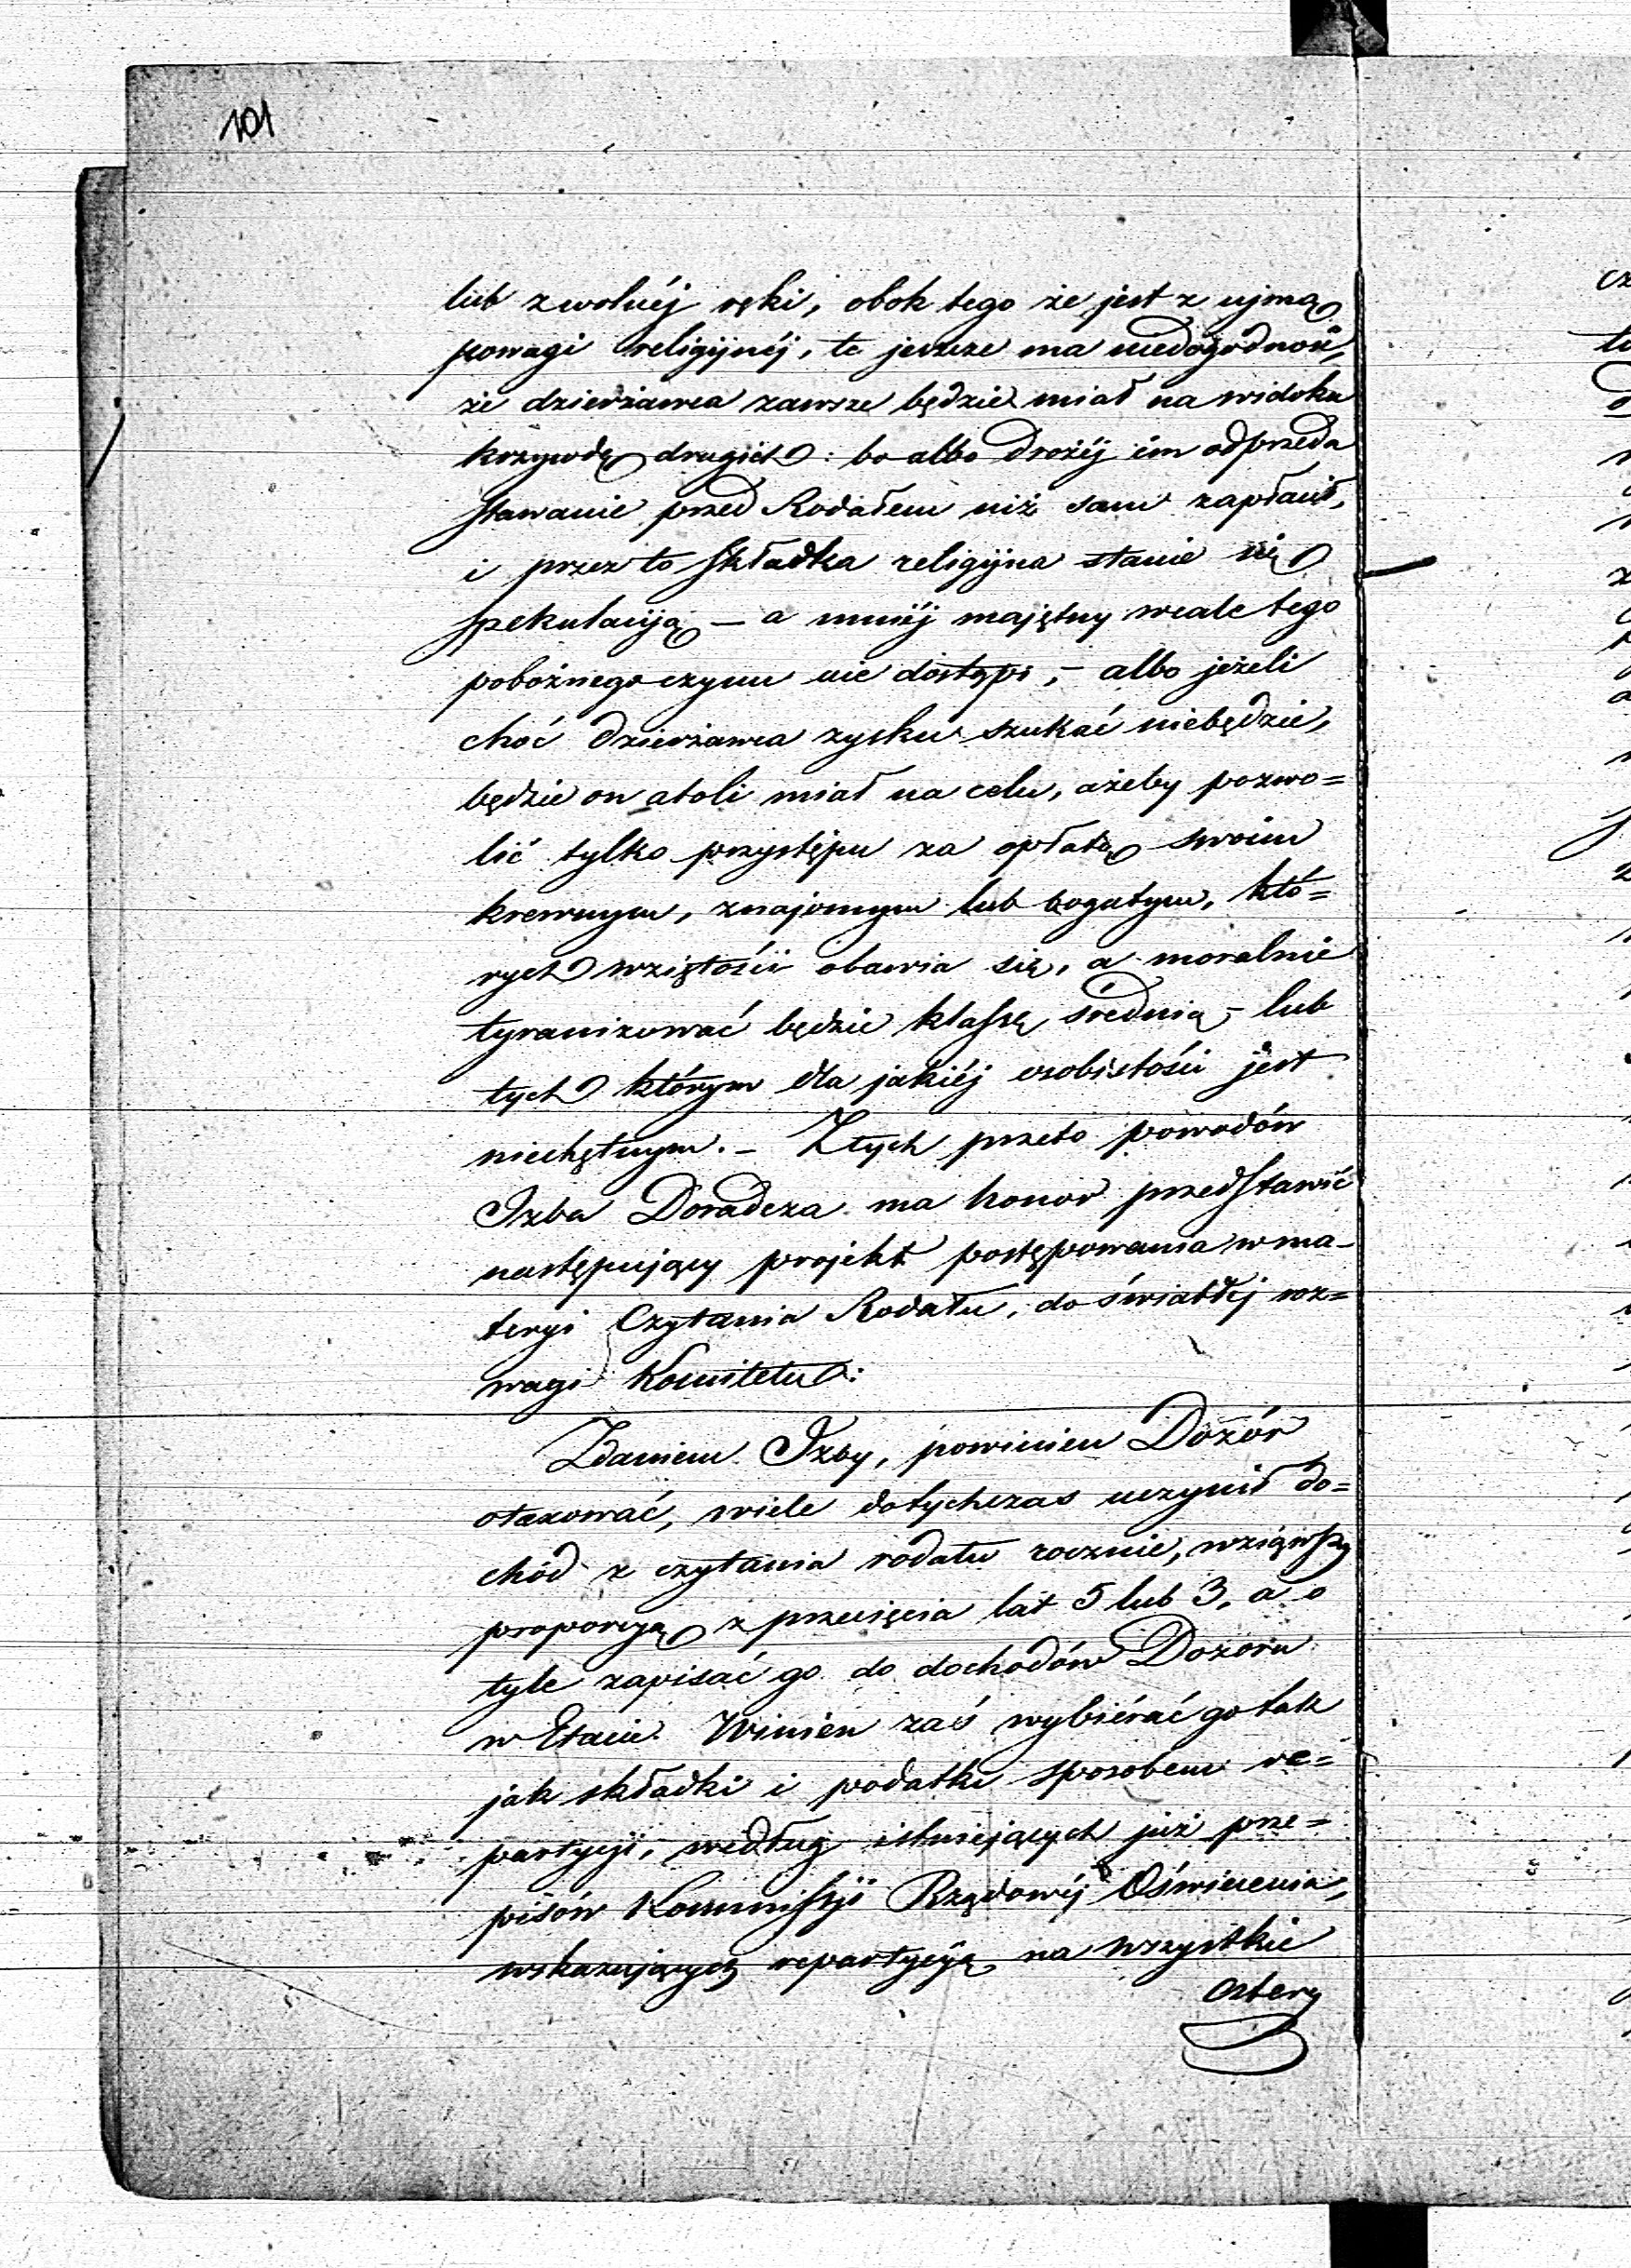 101
lub z wolnéj ręki, obok tego że jest z ujmą
powagi religijnéj, te jeszcze ma niedogodność,
że dzierżawca zawsze będzie miał na widoku
krzywdę drugich: bo albo drożéj im odprzeda
stawanie przed Rodałem niż sam zapłacił,
i przez to składka religijna stanie się
spekulaciją – a mniéj majętny wcale tego
pobożnego czynu nie dostąpi, – albo jeżeli
choć dzierżawca zysku szukać niebędzie,
będzie on atoli miał na celu, ażeby pozwo=
lić tylko przystępu za opłatą swoim
krewnym, znajomym lub bogatym, któ=
rych wziętości obawia się, a moralnie
tyranizować będzie klassę średnią – lub
tych którym dla jakiéj osobistości jest
niechętnym. – Z tych przeto powodów
Izba Doradcza ma honor przedstawić
następujący projekt postępowania w ma-
teryi Czytania Rodału, do światłéj roz=
wagi Komitetu:
Zdaniem Izby, powinien Dozór
otaxować, wiele dotychczas uczynił do=
chód z czytania rodału rocznie, wziąwszy
proporcyą z przecięcia lat 5 lub 3, a o
tyle zapisać go do dochodów Dozoru
w Etacie. Winien zaś wybiérać go tak
jak składki i podatki sposobem re=
partycyi, według istniejących już prze=
pisów Kommissyi Rządowéj Oświecenia,
wskazujących repartycyą na wszystkie
cztery